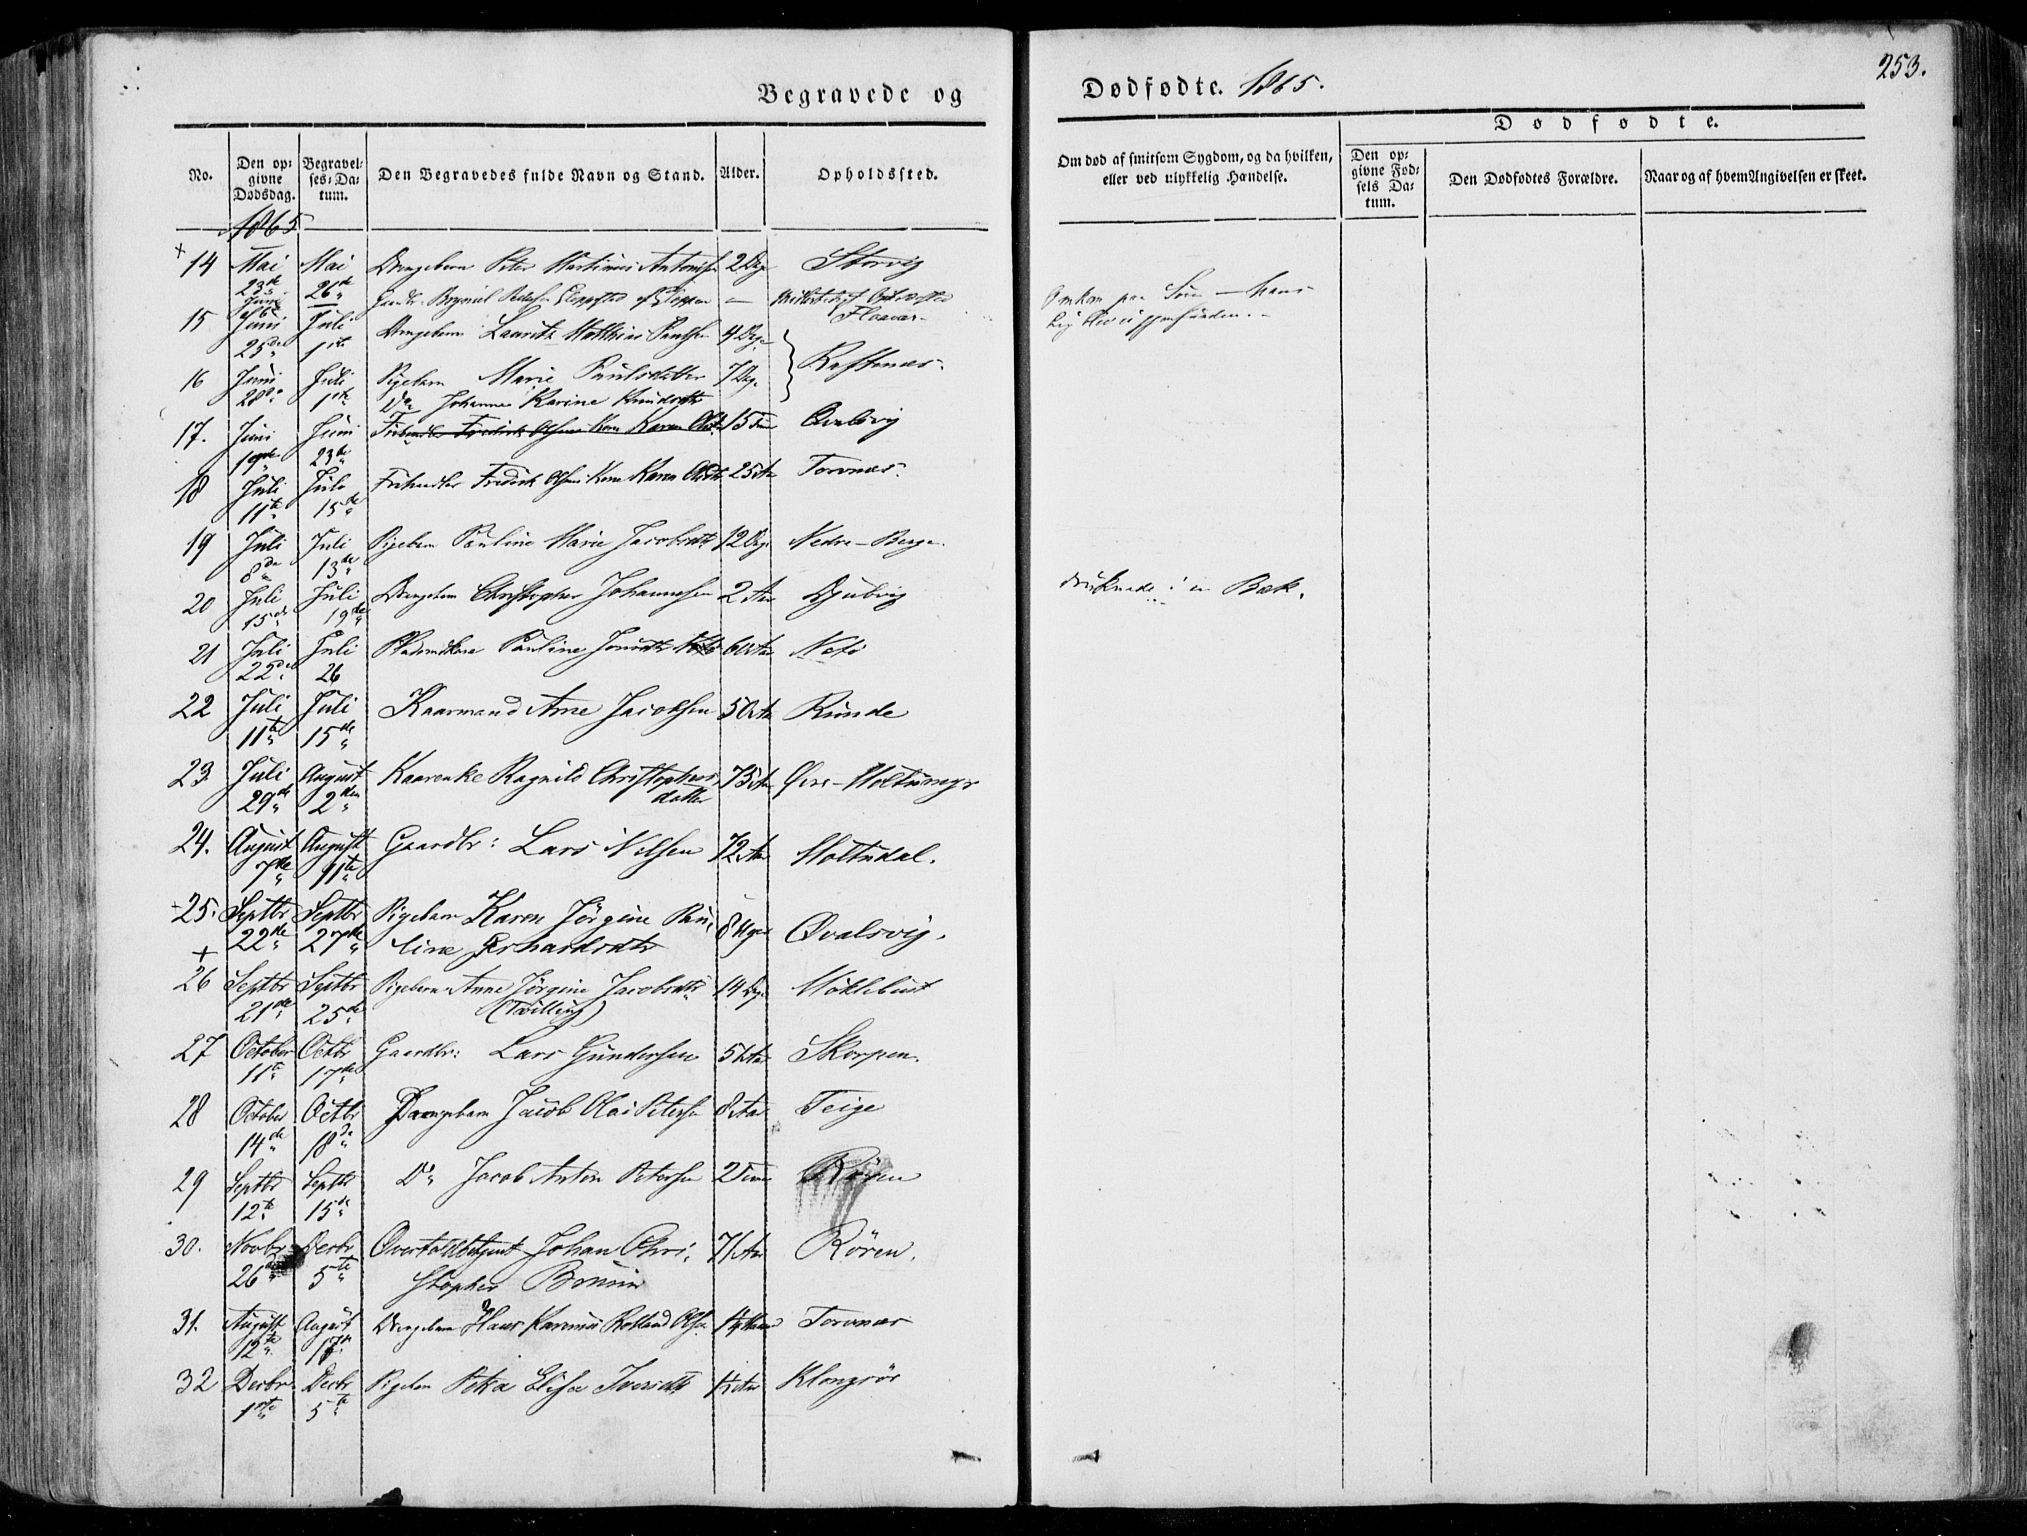 Begravede og
Dødfødte. 1865.
253.
No.
Den opgivne Dødsdag.
Begravelses-Datum.
Den Begravedes fulde Navn og Stand.
Alder.
Opholdssted.
Om død af smitsom Sygdom, og da hvilken, eller ved ulykkelig Hændelse.
Dødfødte.
Den opgivne Fødsels Datum.
Den Dødfødtes Forældre.
Naar og af hvem Angivelsen er skeet.
1865
+
14 Mai 23de Mai 26de Drengebarn Peter Martinus Antonisen 2 Dage Storvig
Gaardbr. — Omkom paa Søen — hans Lig blev
15 Juni 25de Juli 1ste Drengebarn Lauritz Matthias 4 Dage
16 Juni 28de Juli 1ste Pigebarn Marie Paulsdatter 7 Dage
Do Johanne Karine
17. Juni 19de Juni 23de Fredrik Olsens Kone Karen 15 Timer Qvalsvig
18 Juli 11te Juli 15de Frihandler Fredrik Olsens Kone Karen 25 Aar Torvnæs
19 Juli 8de Juli 13de Pigebarn Pauline Marie Jacobsdtr 12 Dage Nedre-Berge
20 Juli 15de Juli 19de Drengebarn Christopher Johannesen 2 Aar Djubvig druknede i en Bæk.
21 Juli 22de Juli 26 Pauline 60 Aar
22 Juli 11te Juli 15de Kaarmand Arne Jacobsen 50 Aar Runde
23 Juli 29de August 2den Kaarenke Ragnild Christophers
datter 75 Aar Øvre-
24. August 7de August 11te Gaardbr: Lars Nilsen 72 Aar Moltudal.
25. Septbr 22de Septbr 27de Pigebarn Karen Jørgine Pau-
line Gerhardsdtr 8 Uger Qvalsvig.
+
26 Septbr 21de Septbr 25de Pigebarn Anne Jørgine Jacobsdtr 14 Dage Møklebust
(Tvilling)
27 October 11te Octbr 17de Gaardbr: Lars Gundersen Aar Skorpen.
28 October 14de Octbr 18de Drengebarn Jacob Olai Petersen 8 Aar Teige
29 Septbr 12te Septbr 15de Do Jacob Anton Petersen 2 Timer Røren
30. Novbr 26de Decbr 5te Johan Chri-
stopher 71 Aar Røren.
31. August 12te August 17de Drengebarn Hans Olsen Torvnæs
32 Decbr 1ste Decbr 5te Pigebarn Elisa Iversdtr Aar